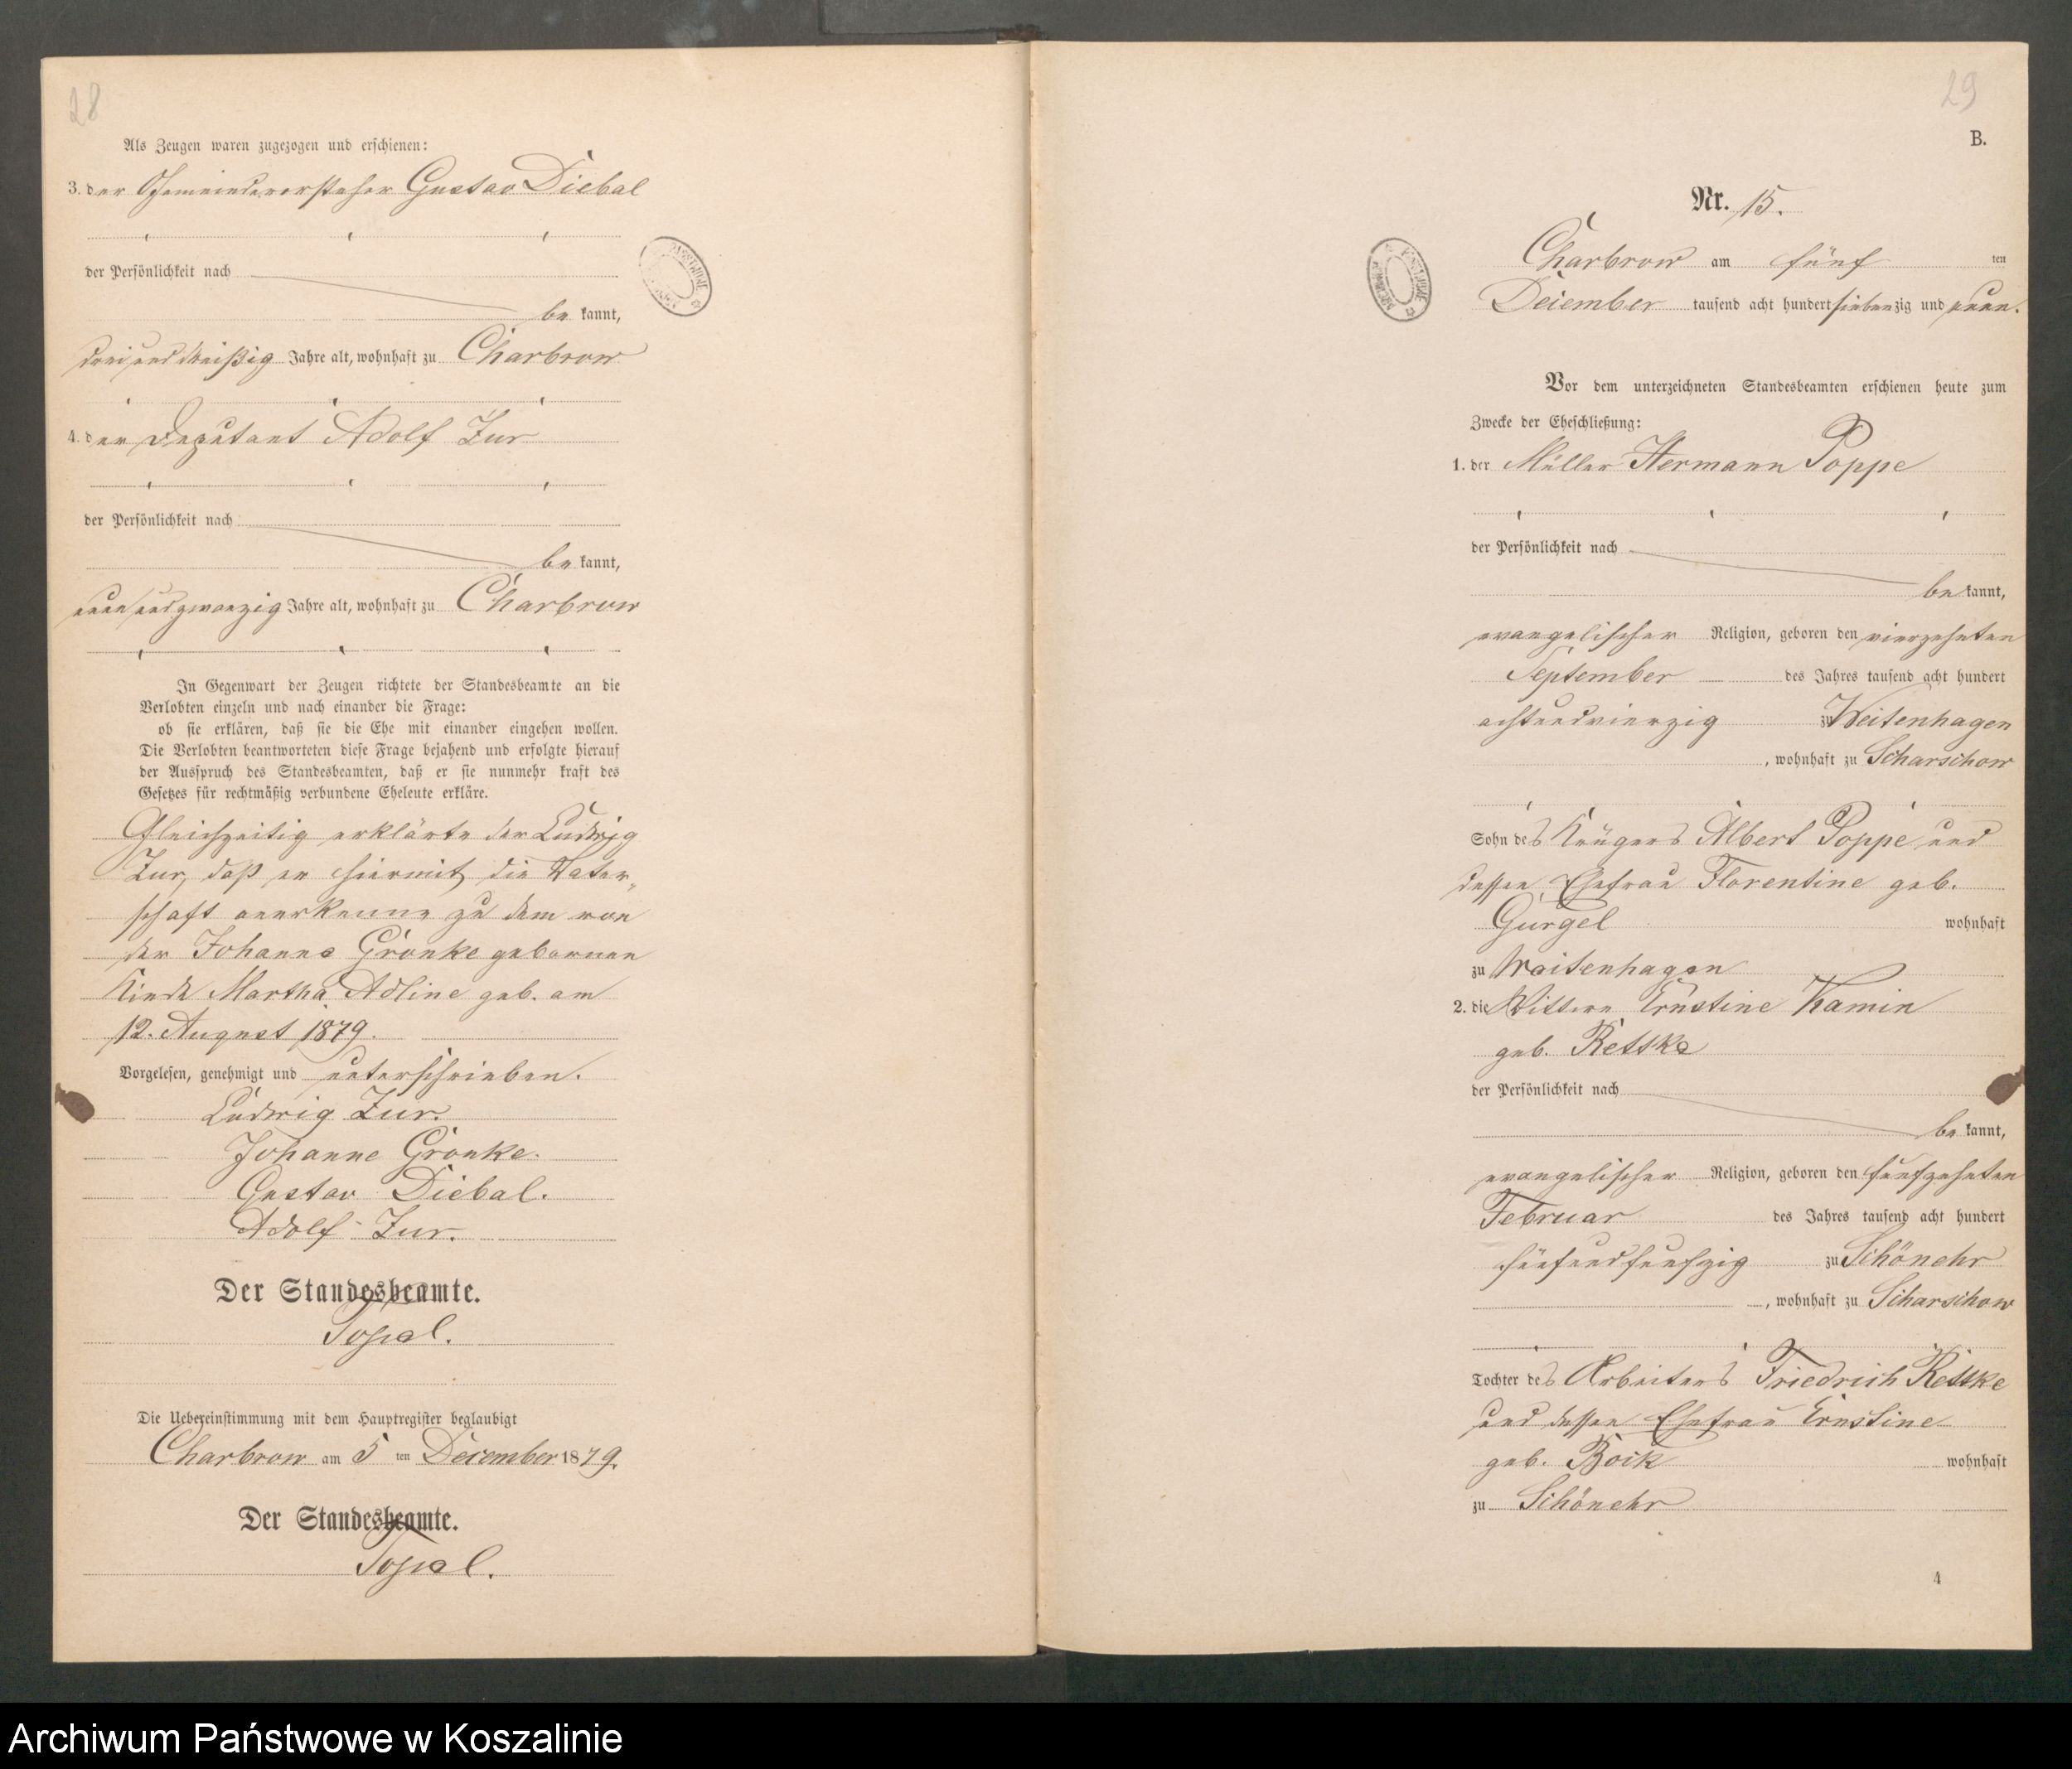 28
Als Zeugen waren zugezogen und erschienen:
3. der Gemeindevorsteher Gustav Diebal
der Persönlichkeit nach
be kannt,
dreiunddreißig Jahre alt, wohnhaft zu Charbrow
4. der Deputant Adolf Zur
der Persönlichkeit nach
be kannt,
neunundzwanzig Jahre alt, wohnhaft zu Charbrow
In Gegenwart der Zeugen richtete der Standesbeamte an die
Verlobten einzeln und nach einander die Frage:
ob sie erklären, daß sie die Ehe mit einander eingehen wollen.
Die Verlobten beantworteten diese Frage bejahend und erfolgte hierauf
der Ausspruch des Standesbeamten, daß er sie nunmehr kraft des
Gesetzes für rechtmäßig verbundene Eheleute erkläre.
Gleichzeitig erklärte der Ludwig
Zur, daß er hiermit die Vater-
schaft anerkenne zu dem von
der Johanne Gronke geborenen
Kinde Martha Adline geb. am
12. August 1879.
Vorgelesen, genehmigt und unterschrieben.
Ludwig Zur.
Johanne Gronke.
Gustav Diebal.
Adolf Zur.
Der Standesbeamte.
Die Uebereinstimmung mit dem Hauptregister beglaubigt
Charbrow am 5 ten December 1879.
Der Standesbeamte.
29
B.
Nr. 15.
Charbrow am fünf ten
December tausend acht hundert siebenzig und neun.
Vor dem unterzeichneten Standesbeamten erschienen heute zum
Zwecke der Eheschließung:
1. der Müller Hermann Poppe
der Persönlichkeit nach
be kannt,
evangelischer Religion, geboren den vierzehnten
September des Jahres tausend acht hundert
achtundvierzig zu Weitenhagen
, wohnhaft zu Scharschow
Sohn des Krügers Albert Poppe und
dessen Ehefrau Florentine geb.
Gurgel wohnhaft
zu Weitenhagen
2. die Wittwe Ernstine Kamin
geb. Retske
der Persönlichkeit nach
be kannt,
evangelischer Religion, geboren den fünfzehnten
Februar des Jahres tausend acht hundert
fünfundfünfzig zu Schönehr
, wohnhaft zu Scharschow
Tochter des Arbeiters Friedrich Retske
und dessen Ehefrau Ernstine
geb. Bock wohnhaft
zu Schönehr
4
Archiwum Państwowe w Koszalinie